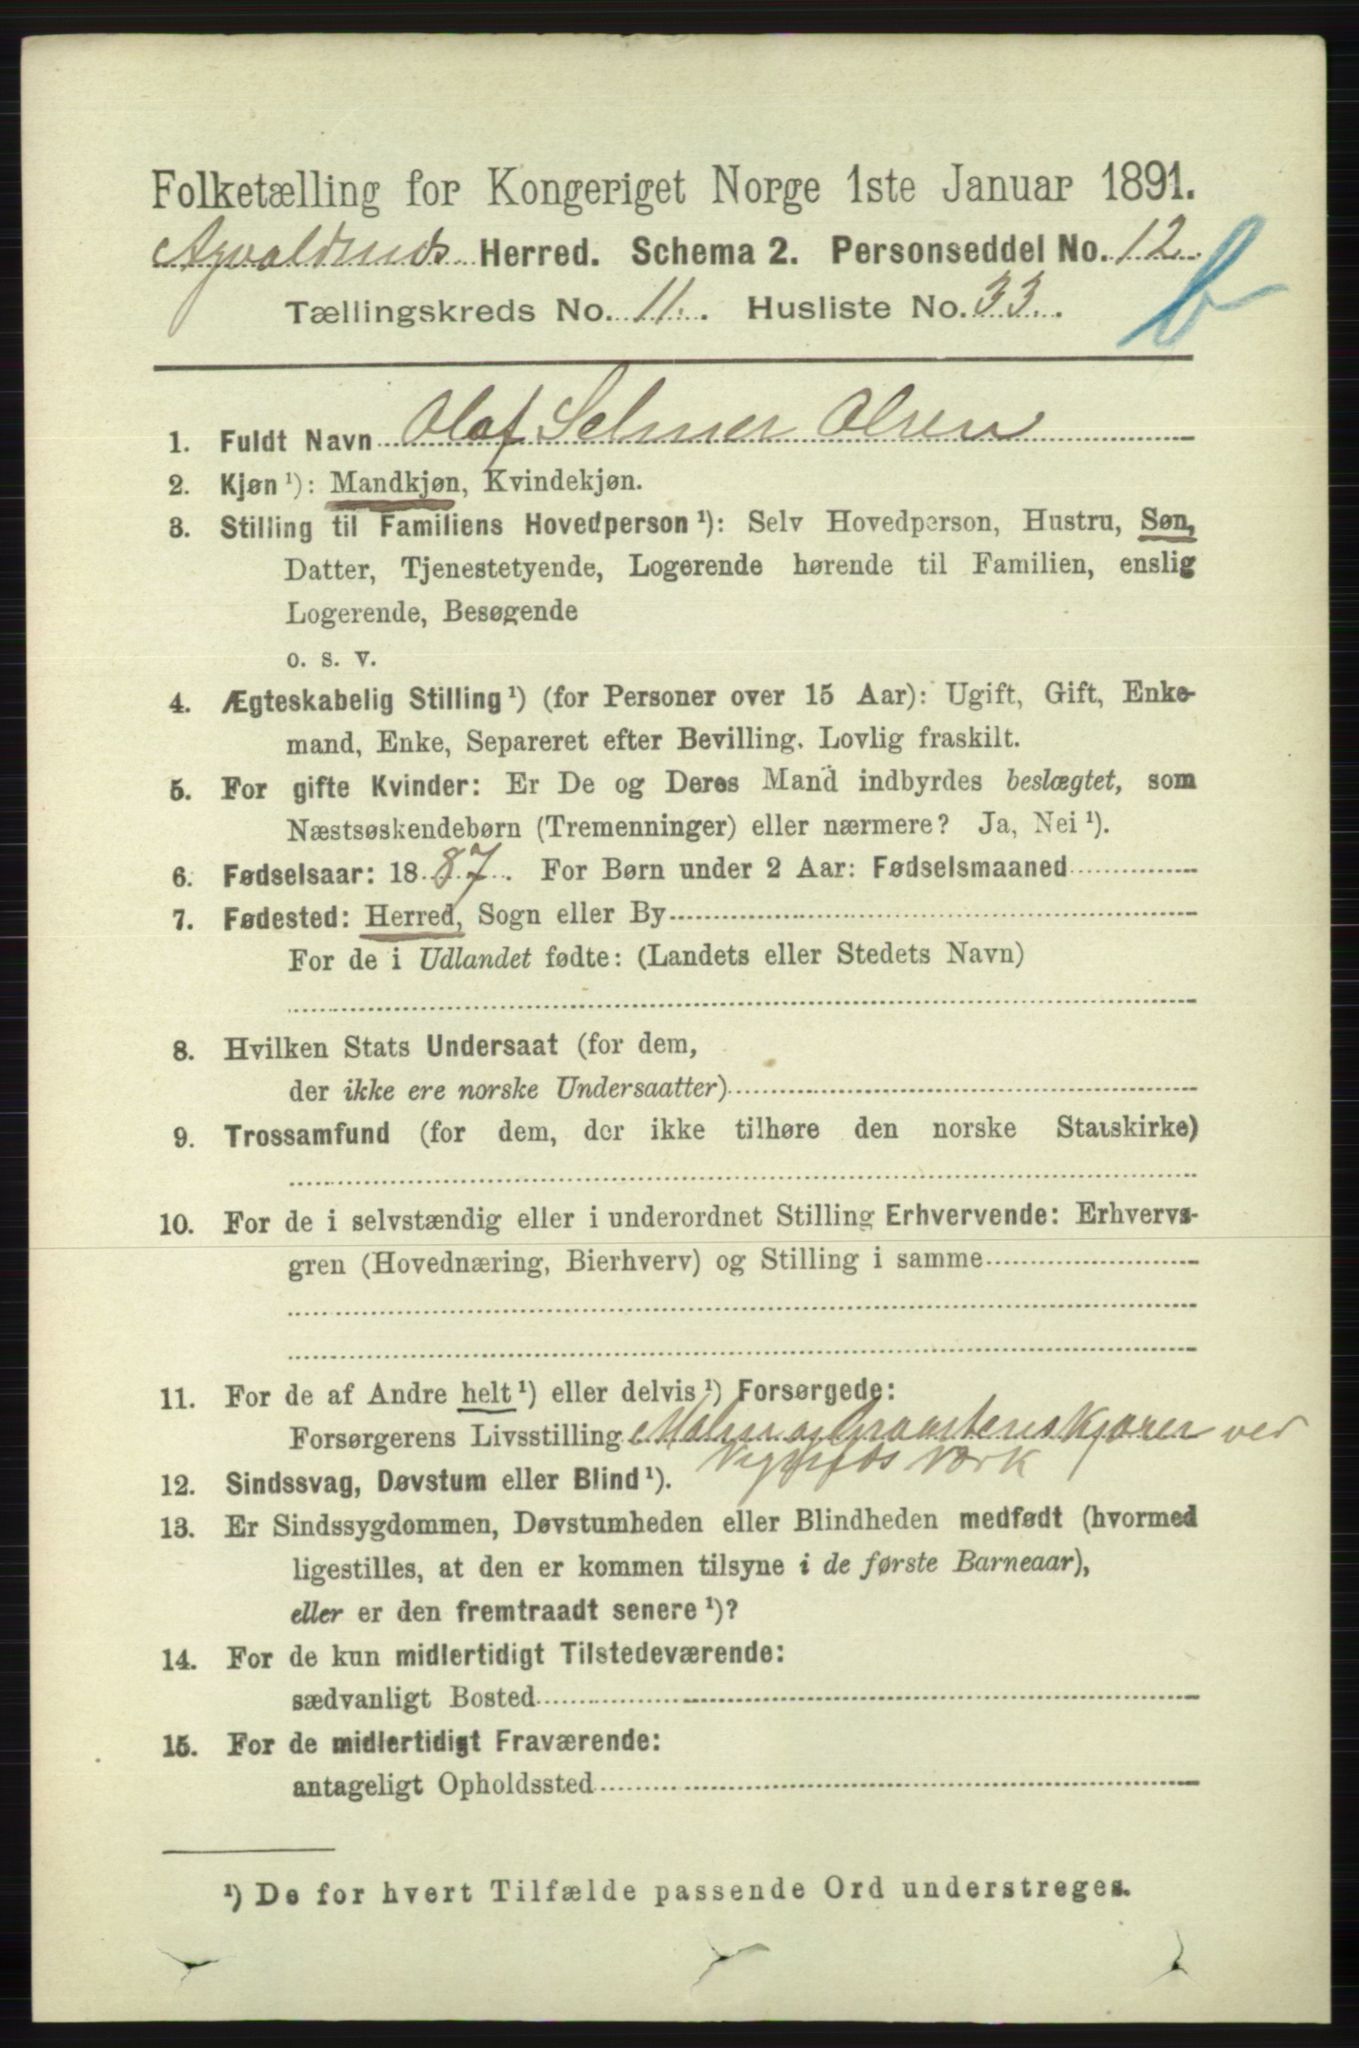 Folketælling for Kongeriget Norge 1ste Januar 1891.
Agvaldsnds Herred. Schema 2. Personseddel No. 12.
b
Tællingskreds No. 11. Husliste No. 33.
1. Fuldt Navn Olaf Selmer Olsen
2. Kjøn¹): Mandkjøn, Kvindekjøn.
3. Stilling til Familiens Hovedperson¹): Selv Hovedperson, Hustru, Søn,
Datter, Tjenestetyende, Logerende hørende til Familien, enslig
Logerende, Besøgende
o. s. v.
4. Ægteskabelig Stilling¹) (for Personer over 15 Aar): Ugift, Gift, Enke-
mand, Enke, Separeret efter Bevilling. Lovlig fraskilt.
5. For gifte Kvinder: Er De og Deres Mand indbyrdes beslægtet, som
Næstsøskendebørn (Tremenninger) eller nærmere? Ja, Nei¹).
6. Fødselsaar: 1887. For Børn under 2 Aar: Fødselsmaaned
7. Fødested: Herred, Sogn eller By
For de i Udlandet fødte: (Landets eller Stedets Navn)
8. Hvilken Stats Undersaat (for dem,
der ikke ere norske Undersaatter)
9. Trossamfund (for dem, der ikke tilhøre den norske Statskirke)
10. For de i selvstændig eller i underordnet Stilling Erhvervende: Erhvervs-
gren (Hovednæring, Bierhverv) og Stilling i samme
11. For de af Andre helt¹) eller delvis¹) Forsørgede:
Forsørgerens Livsstilling Malm og Graastenskjører ved
Værk
12. Sindssvag, Døvstum eller Blind¹).
13. Er Sindssygdommen, Døvstumheden eller Blindheden medfødt (hvormed
ligestilles, at den er kommen tilsyne i de første Barneaar),
eller er den fremtraadt senere¹)?
14. For de kun midlertidigt Tilstedeværende:
sædvanligt Bosted
15. For de midlertidigt Fraværende:
antageligt Opholdssted
¹) De for hvert Tilfælde passende Ord understreges.